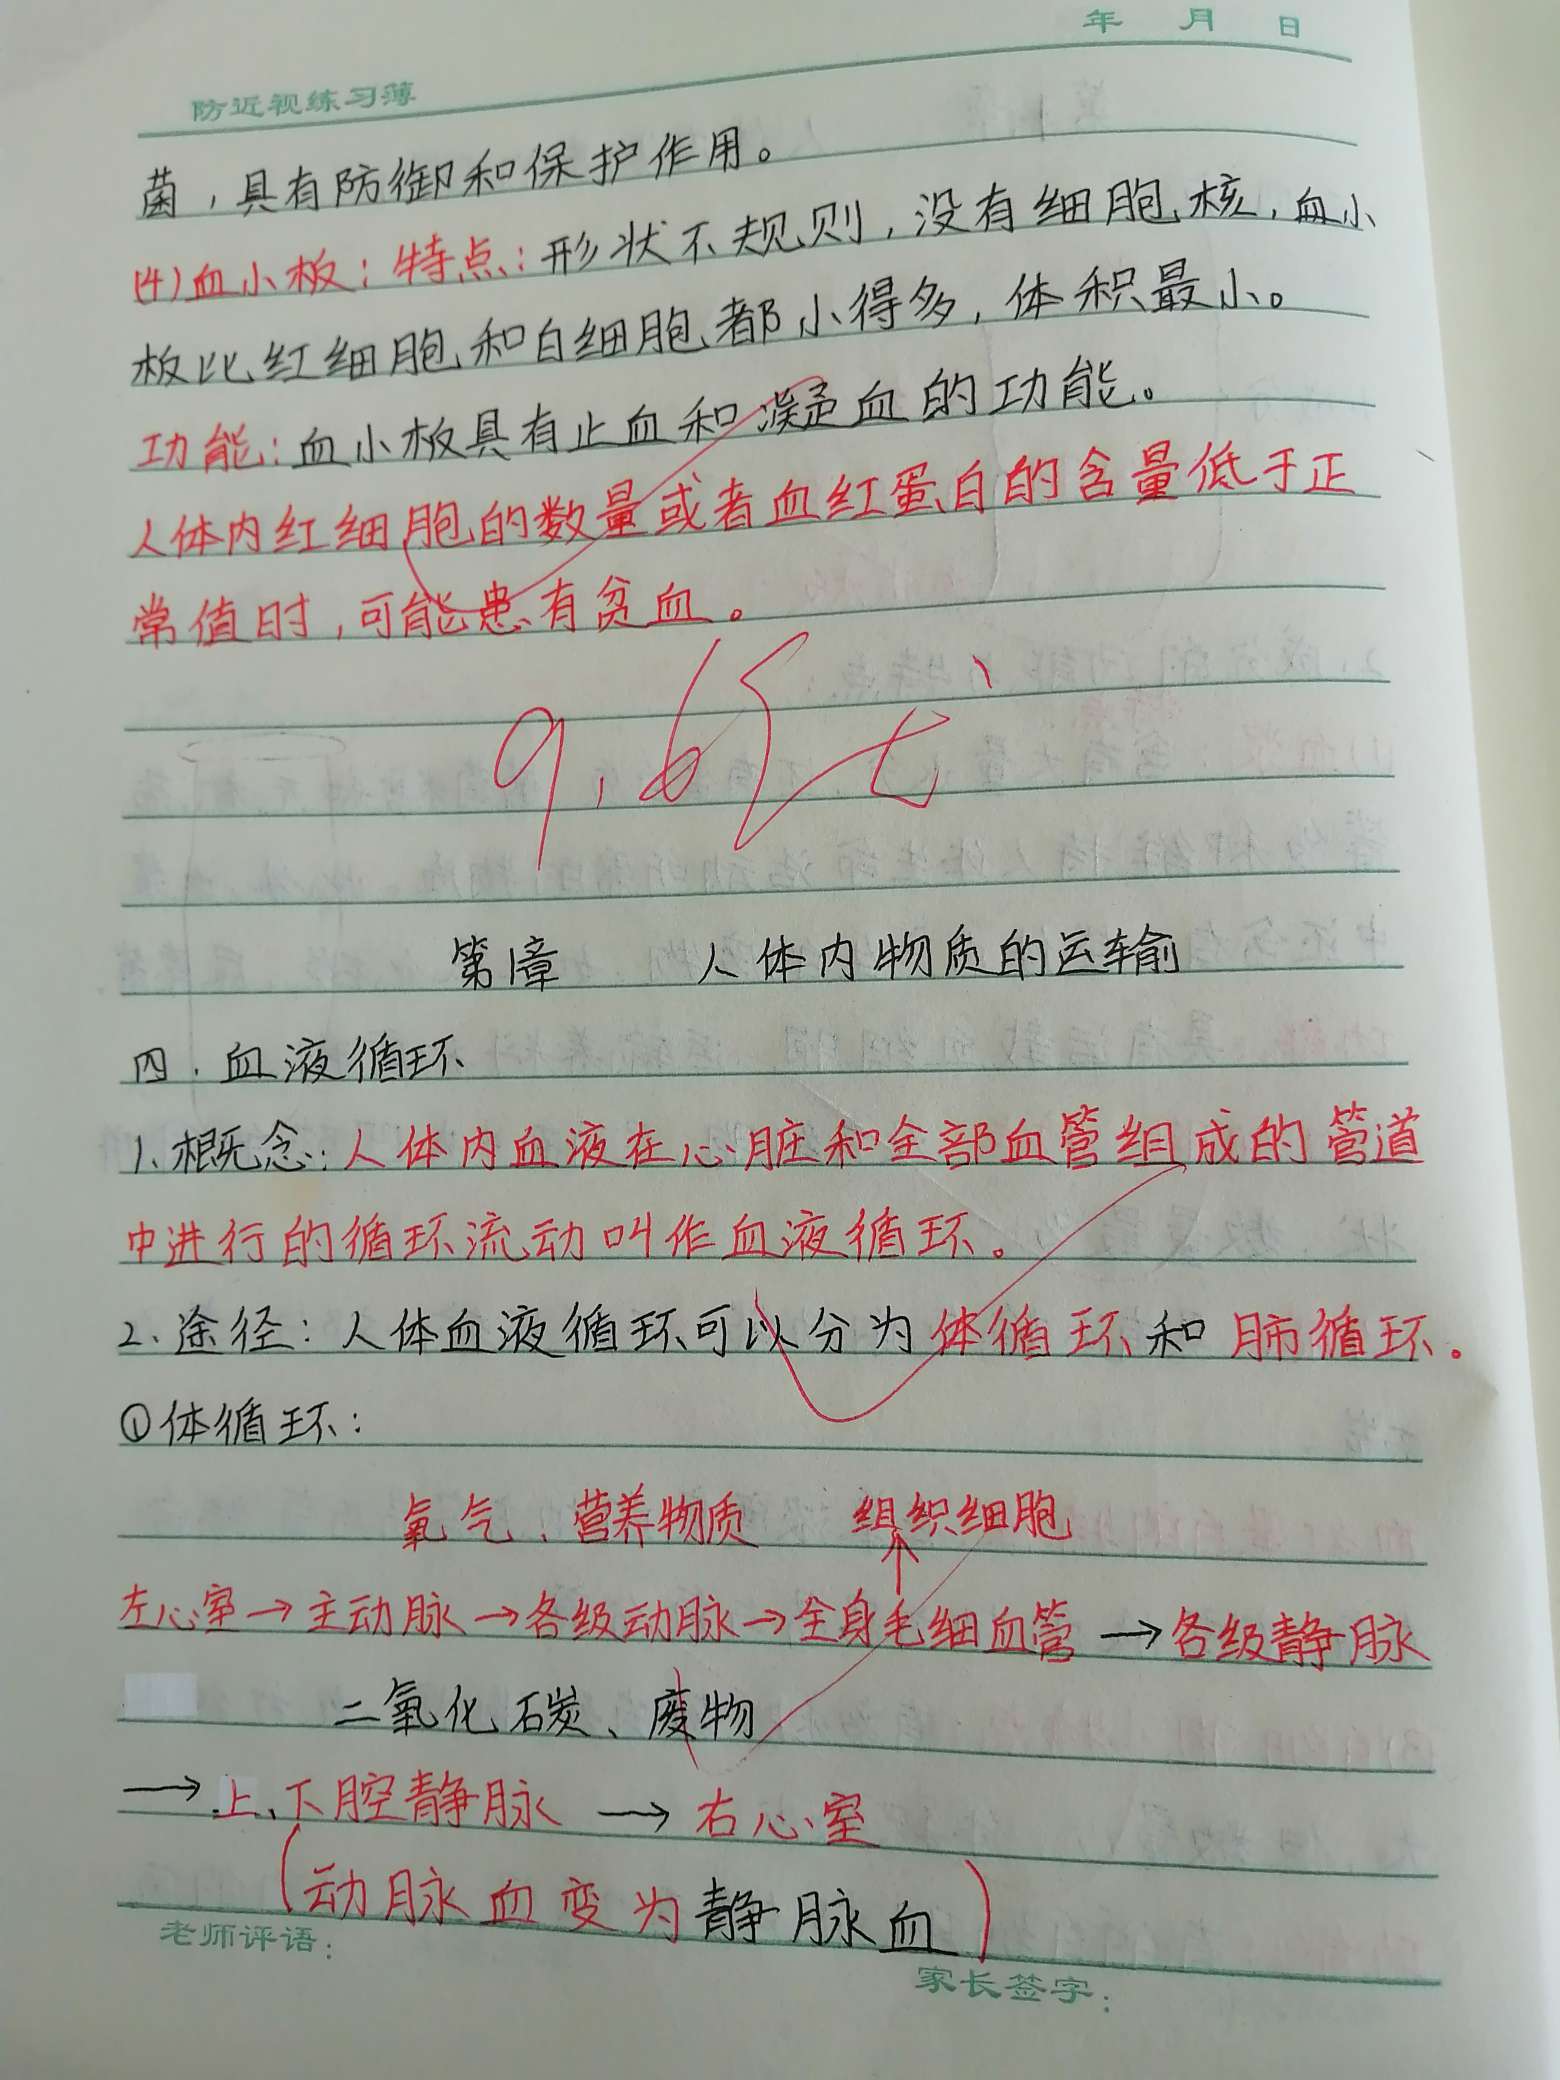 年 月 日
防近视练习薄
菌，具有防御和保护作用。
(4)血小板：特点：形状不规则，没有细胞核，血小
板比红细胞和白细胞都小得多，体积最小。
功能：血小板具有止血和凝血的功能。
人体内红细胞的数量或者血红蛋白的含量低于正
常值时，可能患有贫血。
人体内物质的运输
四．血液循环
1.概念：人体内血液在心脏和全部血管组成的管道
中进行的循环流动叫作血液循环。
2.途径：人体血液循环可以分为体循环和肺循环。
①体循环：
氧气、营养物质 组织细胞
↑
左心室→主动脉→各级动脉→全身毛细血管→各级静脉
二氧化碳、废物
→上、下腔静脉→右心室
(动脉血变为静脉血)
老师评语：
家长签字：